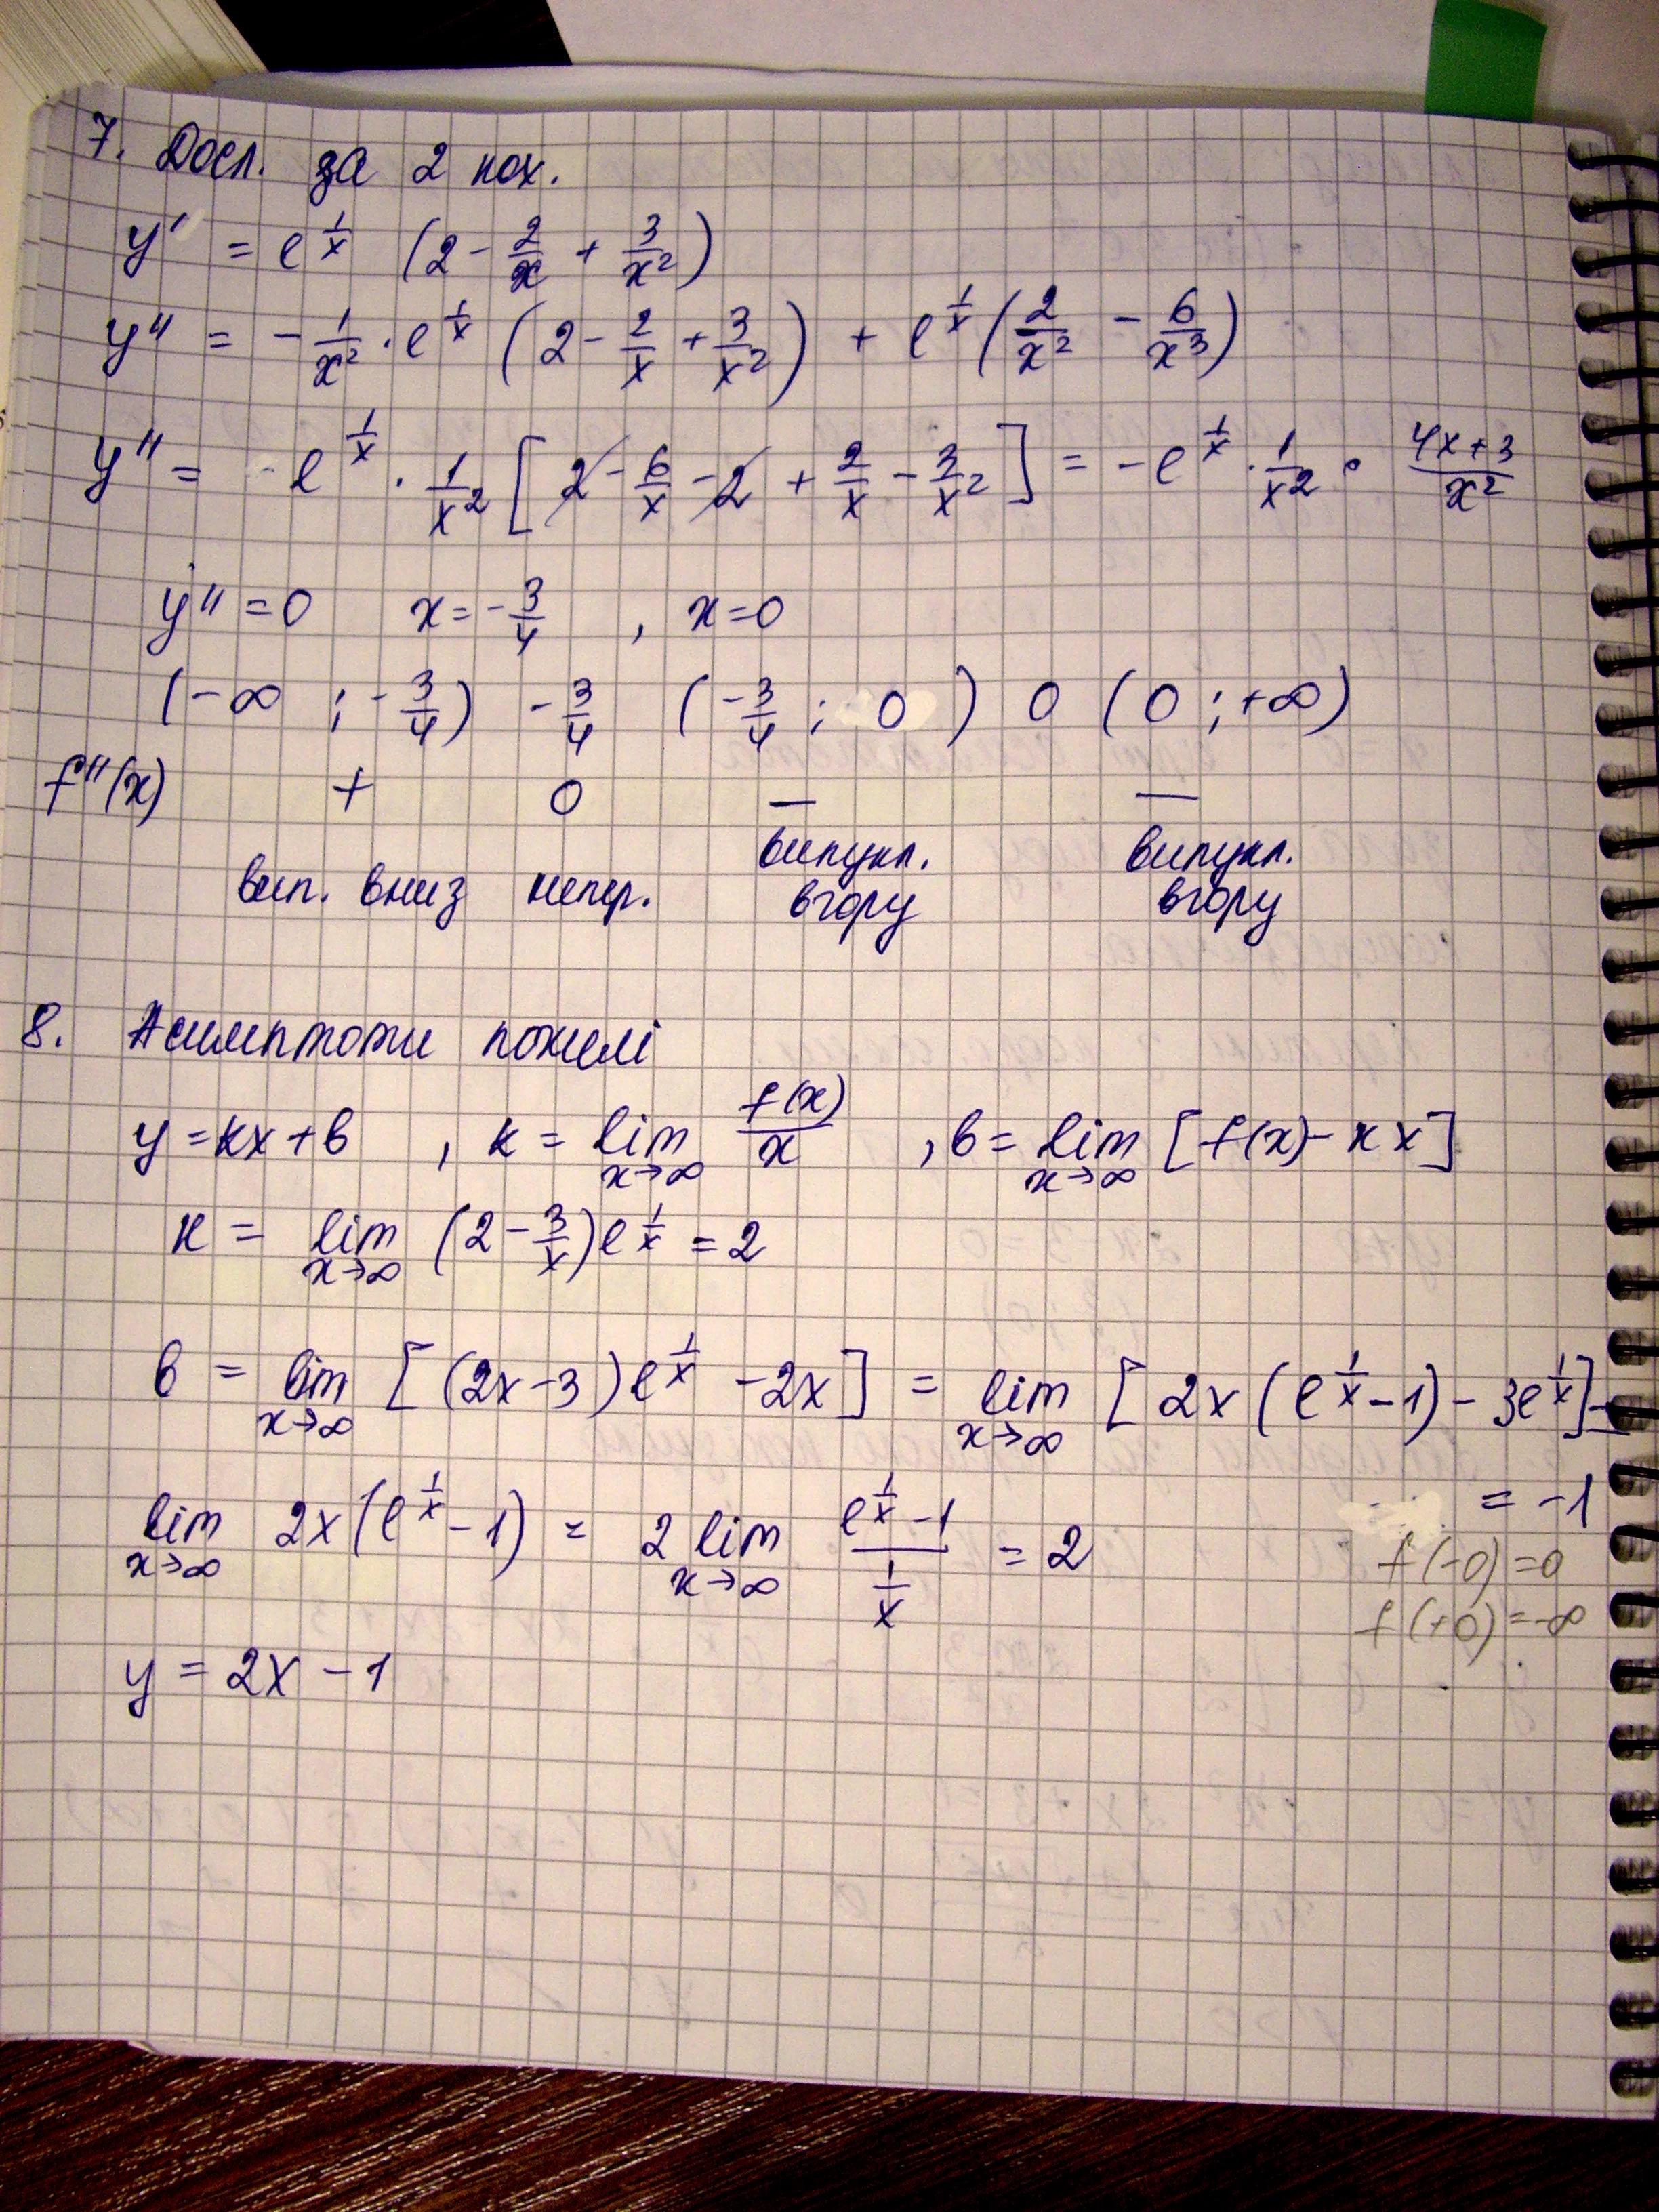 7. Досл. за 2 пох.
y' = e^{1/x} (2 - 2/x + 3/x²)
y'' = - 1/x² · e^{1/x} (2 - 2/x + 3/x²) + e^{1/x} (2/x² - 6/x³)
y'' = e^{1/x} · 1/x² [2 - 6/x - 2 + 2/x - 3/x²] = -e^{1/x} · 1/x² · (4x+3)/x²
y'' = 0 x = -3/4 , x = 0
(-∞ ; -3/4) -3/4 (-3/4 ; 0) 0 (0 ; +∞)
f''(x) + 0 — —
вип. вниз непер. випукл. вгору випукл. вгору
8. Асимптоти похилі
y = kx + b , k = lim x→∞ f(x)/x , b = lim x→∞ [f(x) - kx]
k = lim x→∞ (2 - 3/x)e^{1/x} = 2
b = lim x→∞ [(2x-3)e^{1/x} - 2x] = lim x→∞ [2x(e^{1/x} - 1) - 3e^{1/x}] =
= -1
lim x→∞ 2x(e^{1/x} - 1) = 2 lim x→∞ (e^{1/x} - 1)/(1/x) = 2
f(-0) = 0
f(+0) = -∞
y = 2x - 1